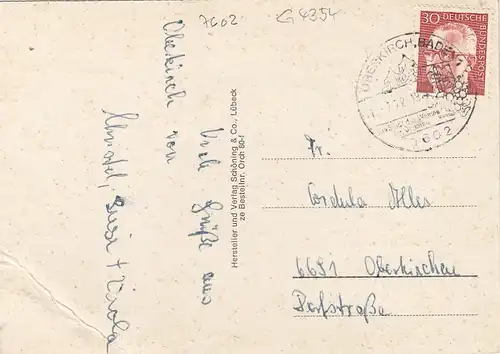 7602
G 4354
30 DEUTSCHE BUNDESPOST
OBERKIRCH, BADEN
7602
Viele Grüße aus
Oberkirch von
Christel, Susi + Viola
Hersteller und Verlag Schöning & Co., Lübeck
ze Bestellnr. Orch 60-f
Fr.
Cordula Alles
6691 Oberkirchen
Dorfstraße